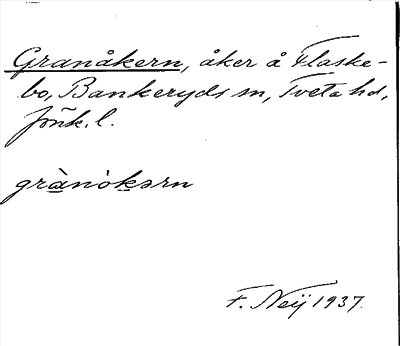 Granåkern, åker å Flaske-
bo, Bankeryds sn, Tveta hd,
Jönk. l.
grànòkərn
F. Neij 1937.